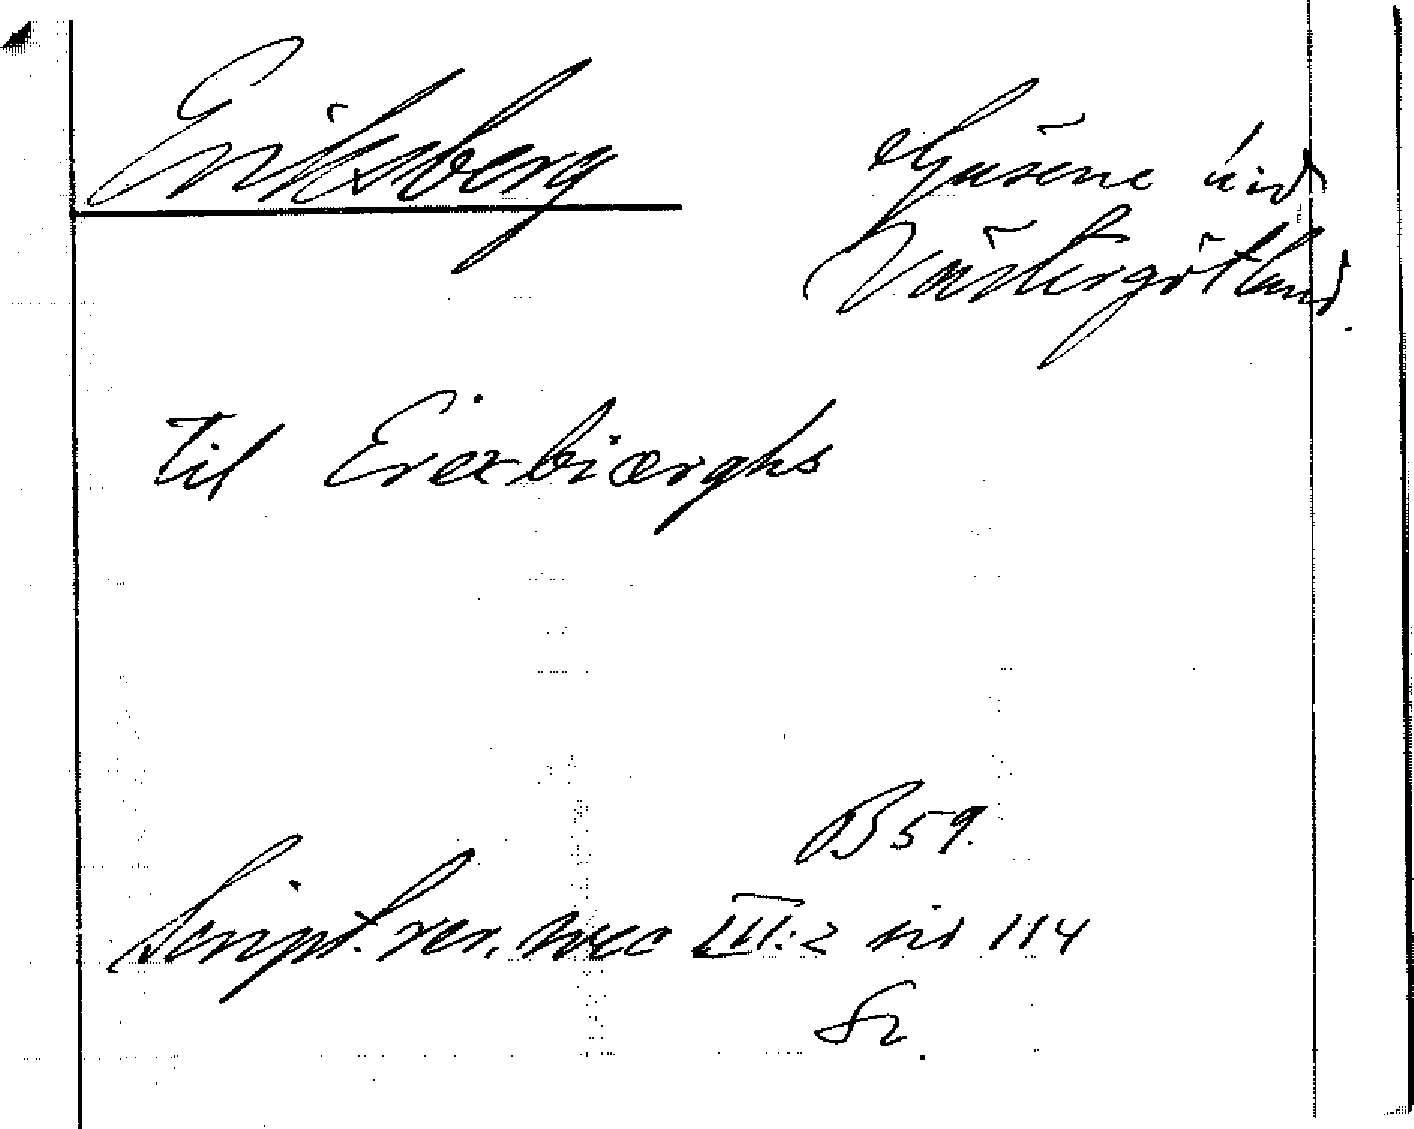 Eriksberg
Gäsene hd
Västergötland.
til Erexbiærghs
B 59.
Script. rer. svec III:2 sid 114